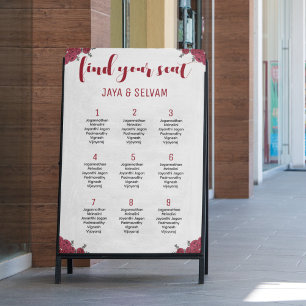 find your seat
JAYA & SELVAM
1
Jagannathan
Malathi
Jayanthi Jagan
Padmavathy
Vignesh
Vijayaraj
2
Jagannathan
Malathi
Jayanthi Jagan
Padmavathy
Vignesh
Vijayaraj
3
Jagannathan
Malathi
Jayanthi Jagan
Padmavathy
Vignesh
Vijayaraj
4
Jagannathan
Malathi
Jayanthi Jagan
Padmavathy
Vignesh
Vijayaraj
5
Jagannathan
Malathi
Jayanthi Jagan
Padmavathy
Vignesh
Vijayaraj
6
Jagannathan
Malathi
Jayanthi Jagan
Padmavathy
Vignesh
Vijayaraj
7
Jagannathan
Malathi
Jayanthi Jagan
Padmavathy
Vignesh
Vijayaraj
8
Jagannathan
Malathi
Jayanthi Jagan
Padmavathy
Vignesh
Vijayaraj
9
Jagannathan
Malathi
Jayanthi Jagan
Padmavathy
Vignesh
Vijayaraj